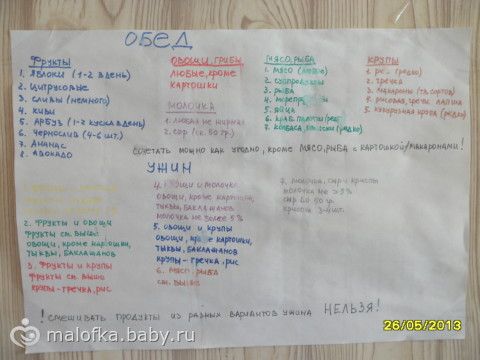 ОБЕД
ФРУКТЫ
1. ЯБЛОКИ (1-2 В ДЕНЬ)
2. ЦИТРУСОВЫЕ
3. СЛИВЫ (НЕМНОГО)
4. КИВИ
5. АРБУЗ (1-2 КУСКА В ДЕНЬ)
6. ЧЕРНОСЛИВ (4-6 ШТ.)
7. АНАНАС
8. АВОКАДО
ОВОЩИ, ГРИБЫ
ЛЮБЫЕ, КРОМЕ
КАРТОШКИ
МОЛОЧКА
1. ЛЮБАЯ НЕ ЖИРНАЯ
2. СЫР (СК. 50 ГР.)
МЯСО, РЫБА
1. МЯСО
2. СУБПРОДУКТЫ
3. РЫБА
4.
5. ЯЙЦА
6. КРАБ.
7. КОЛБАСА, (РЕДКО)
КРУПЫ
1. РИС (РЕДКО)
2. ГРЕЧКА
3. МАКАРОНЫ (ТВ. СОРТОВ)
4. РИСОВАЯ, ГРЕЧН. ЛАПША
5. КУКУРУЗНАЯ КРУПА (РЕДКО)
СОЧЕТАТЬ МОЖНО КАК УГОДНО, КРОМЕ МЯСО, РЫБА С КАРТОШКОЙ/МАКАРОНАМИ!
УЖИН
2. ФРУКТЫ И ОВОЩИ
ФРУКТЫ СМ. ВЫШЕ
ОВОЩИ, КРОМЕ КАРТОШКИ,
ТЫКВЫ, БАКЛАЖАНОВ
3. ФРУКТЫ И КРУПЫ
ФРУКТЫ СМ. ВЫШЕ
КРУПЫ-ГРЕЧКА, РИС
4. ОВОЩИ И МОЛОЧКА
ОВОЩИ, КРОМЕ КАРТОШКИ,
ТЫКВЫ, БАКЛАЖАНОВ
МОЛОЧКА НЕ БОЛЕЕ 5%
5. ОВОЩИ И КРУПЫ
ОВОЩИ, КРОМЕ КАРТОШКИ,
ТЫКВЫ, БАКЛАЖАНОВ
КРУПЫ-ГРЕЧКА, РИС
6. МЯСО, РЫБА
СМ. ВЫШЕ
7. МОЛОЧКА, СЫР И
МОЛОЧКА НЕ > 5%
СЫР ДО 50 ГР.
3-4 ШТ.
! СМЕШИВАТЬ ПРОДУКТЫ ИЗ РАЗНЫХ ВАРИАНТОВ УЖИНА НЕЛЬЗЯ!
malofka.baby.ru
26/05/2013